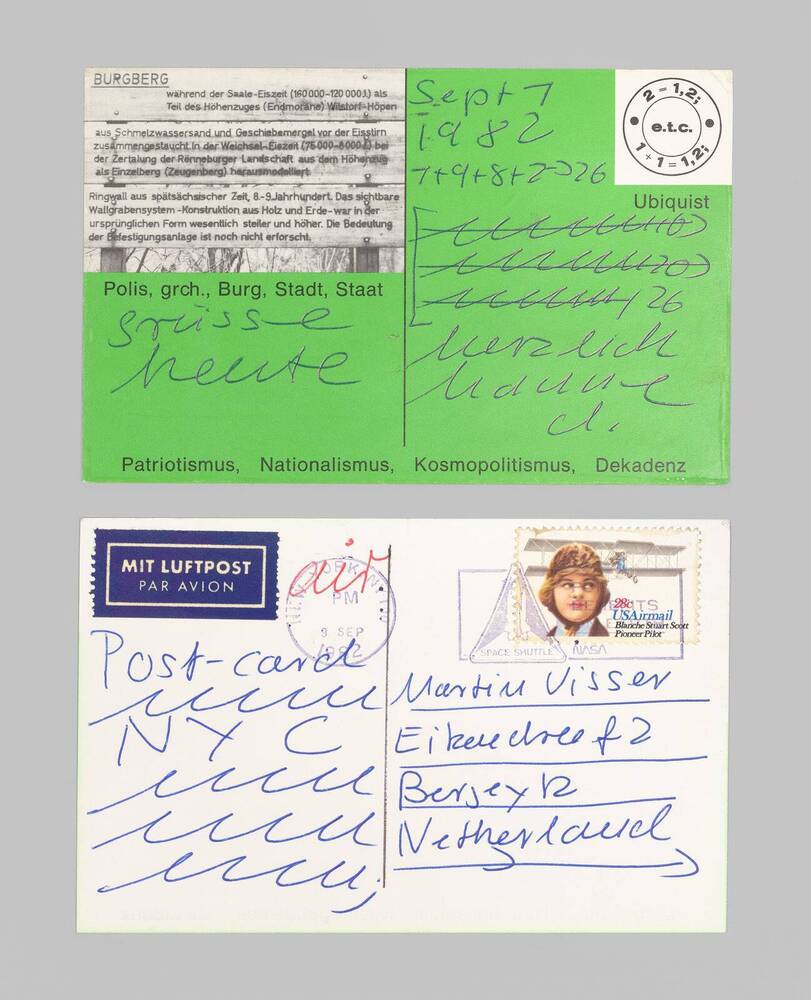 BURGBERG
während der Saale-Eiszeit (160 000-120 000 J.) als
Teil des Höhenzuges (Endmoräne) Wilstorf-Höpen
aus Schmelzwassersand und Geschiebemergel vor der Eisstirn
zusammengestaucht. In der Weichsel-Eiszeit (75 000-8 000 J.) bei
der Zertalung der Rönneburger Landschaft aus dem Höhenzug
als Einzelberg (Zeugenberg) herausmodelliert.
Ringwall aus spätsächsischer Zeit, 8.-9. Jahrhundert. Das sichtbare
Wallgrabensystem - Konstruktion aus Holz und Erde - war in der
ursprünglichen Form wesentlich steiler und höher. Die Bedeutung
der Befestigungsanlage ist noch nicht erforscht.
Polis, grch., Burg, Stadt, Staat
grüsse
heute
Sept 7
1982
7+9+8+2→26
2 = 1,2;
e.t.c.
1 + 1 = 1,2;
Ubiquist
26
herzlich
hanne
d.
Patriotismus, Nationalismus, Kosmopolitismus, Dekadenz
MIT LUFTPOST
PAR AVION
air
NEW YORK NY
PM
SEP
1982
SPACE SHUTTLE
NASA
28c
USAirmail
Blanche Stuart Scott
Pioneer Pilot
Post-card
NYC
Martin Visser
Eikendreef 2
Bergeyk
Netherland